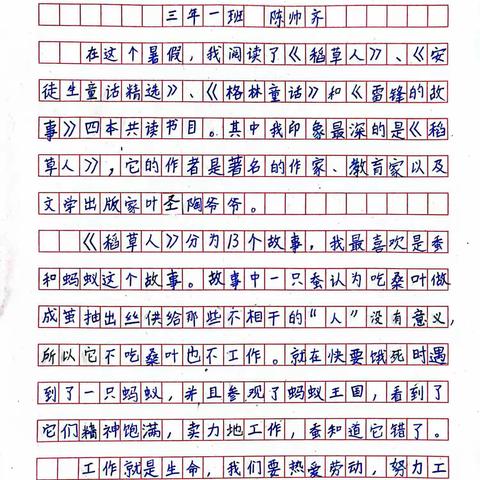 三年一班 陈帅齐
在这个暑假,我阅读了《稻草人》、《安
徒生童话精选》、《格林童话》和《雷锋的故
事》四本共读节目。其中我印象最深的是《稻
草人》,它的作者是著名的作家、教育家以及
文学出版家叶圣陶爷爷。
《稻草人》分为13个故事,我最喜欢是蚕
和蚂蚁这个故事。故事中一只蚕认为吃桑叶做
成茧抽出丝供给那些不相干的“人”没有意义,
所以它不吃桑叶也不工作。就在快要饿死时遇
到了一只蚂蚁,并且参观了蚂蚁王国,看到了
它们精神饱满,卖力地工作,蚕知道它错了。
工作就是生命,我们要热爱劳动,努力工